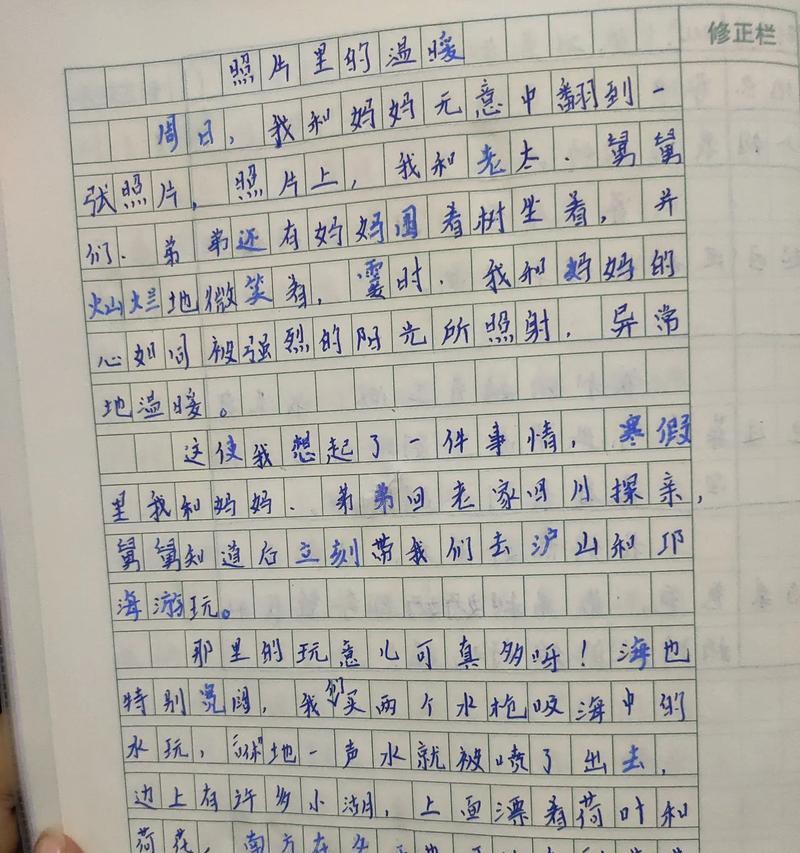 修正栏
照片里的温暖
周日，我和妈妈无意中翻到一
张照片，照片上，我和老太、舅舅
们、弟弟还有妈妈围着树坐着，并
灿烂地微笑着，霎时、我和妈妈的
心如同被强烈的阳光所照射，异常
地温暖。
这使我想起了一件事情，寒假
里我和妈妈、弟弟回老家四川探亲，
舅舅知道后立刻带我们去泸山和邛
海游玩。
那里的玩意儿可真多呀！海也
特别宽阔，我们买两个水枪吸海中的
水玩，地一声水就被喷了出去，
边上有许多小湖，上面漂着荷叶和
荷花，南方在冬